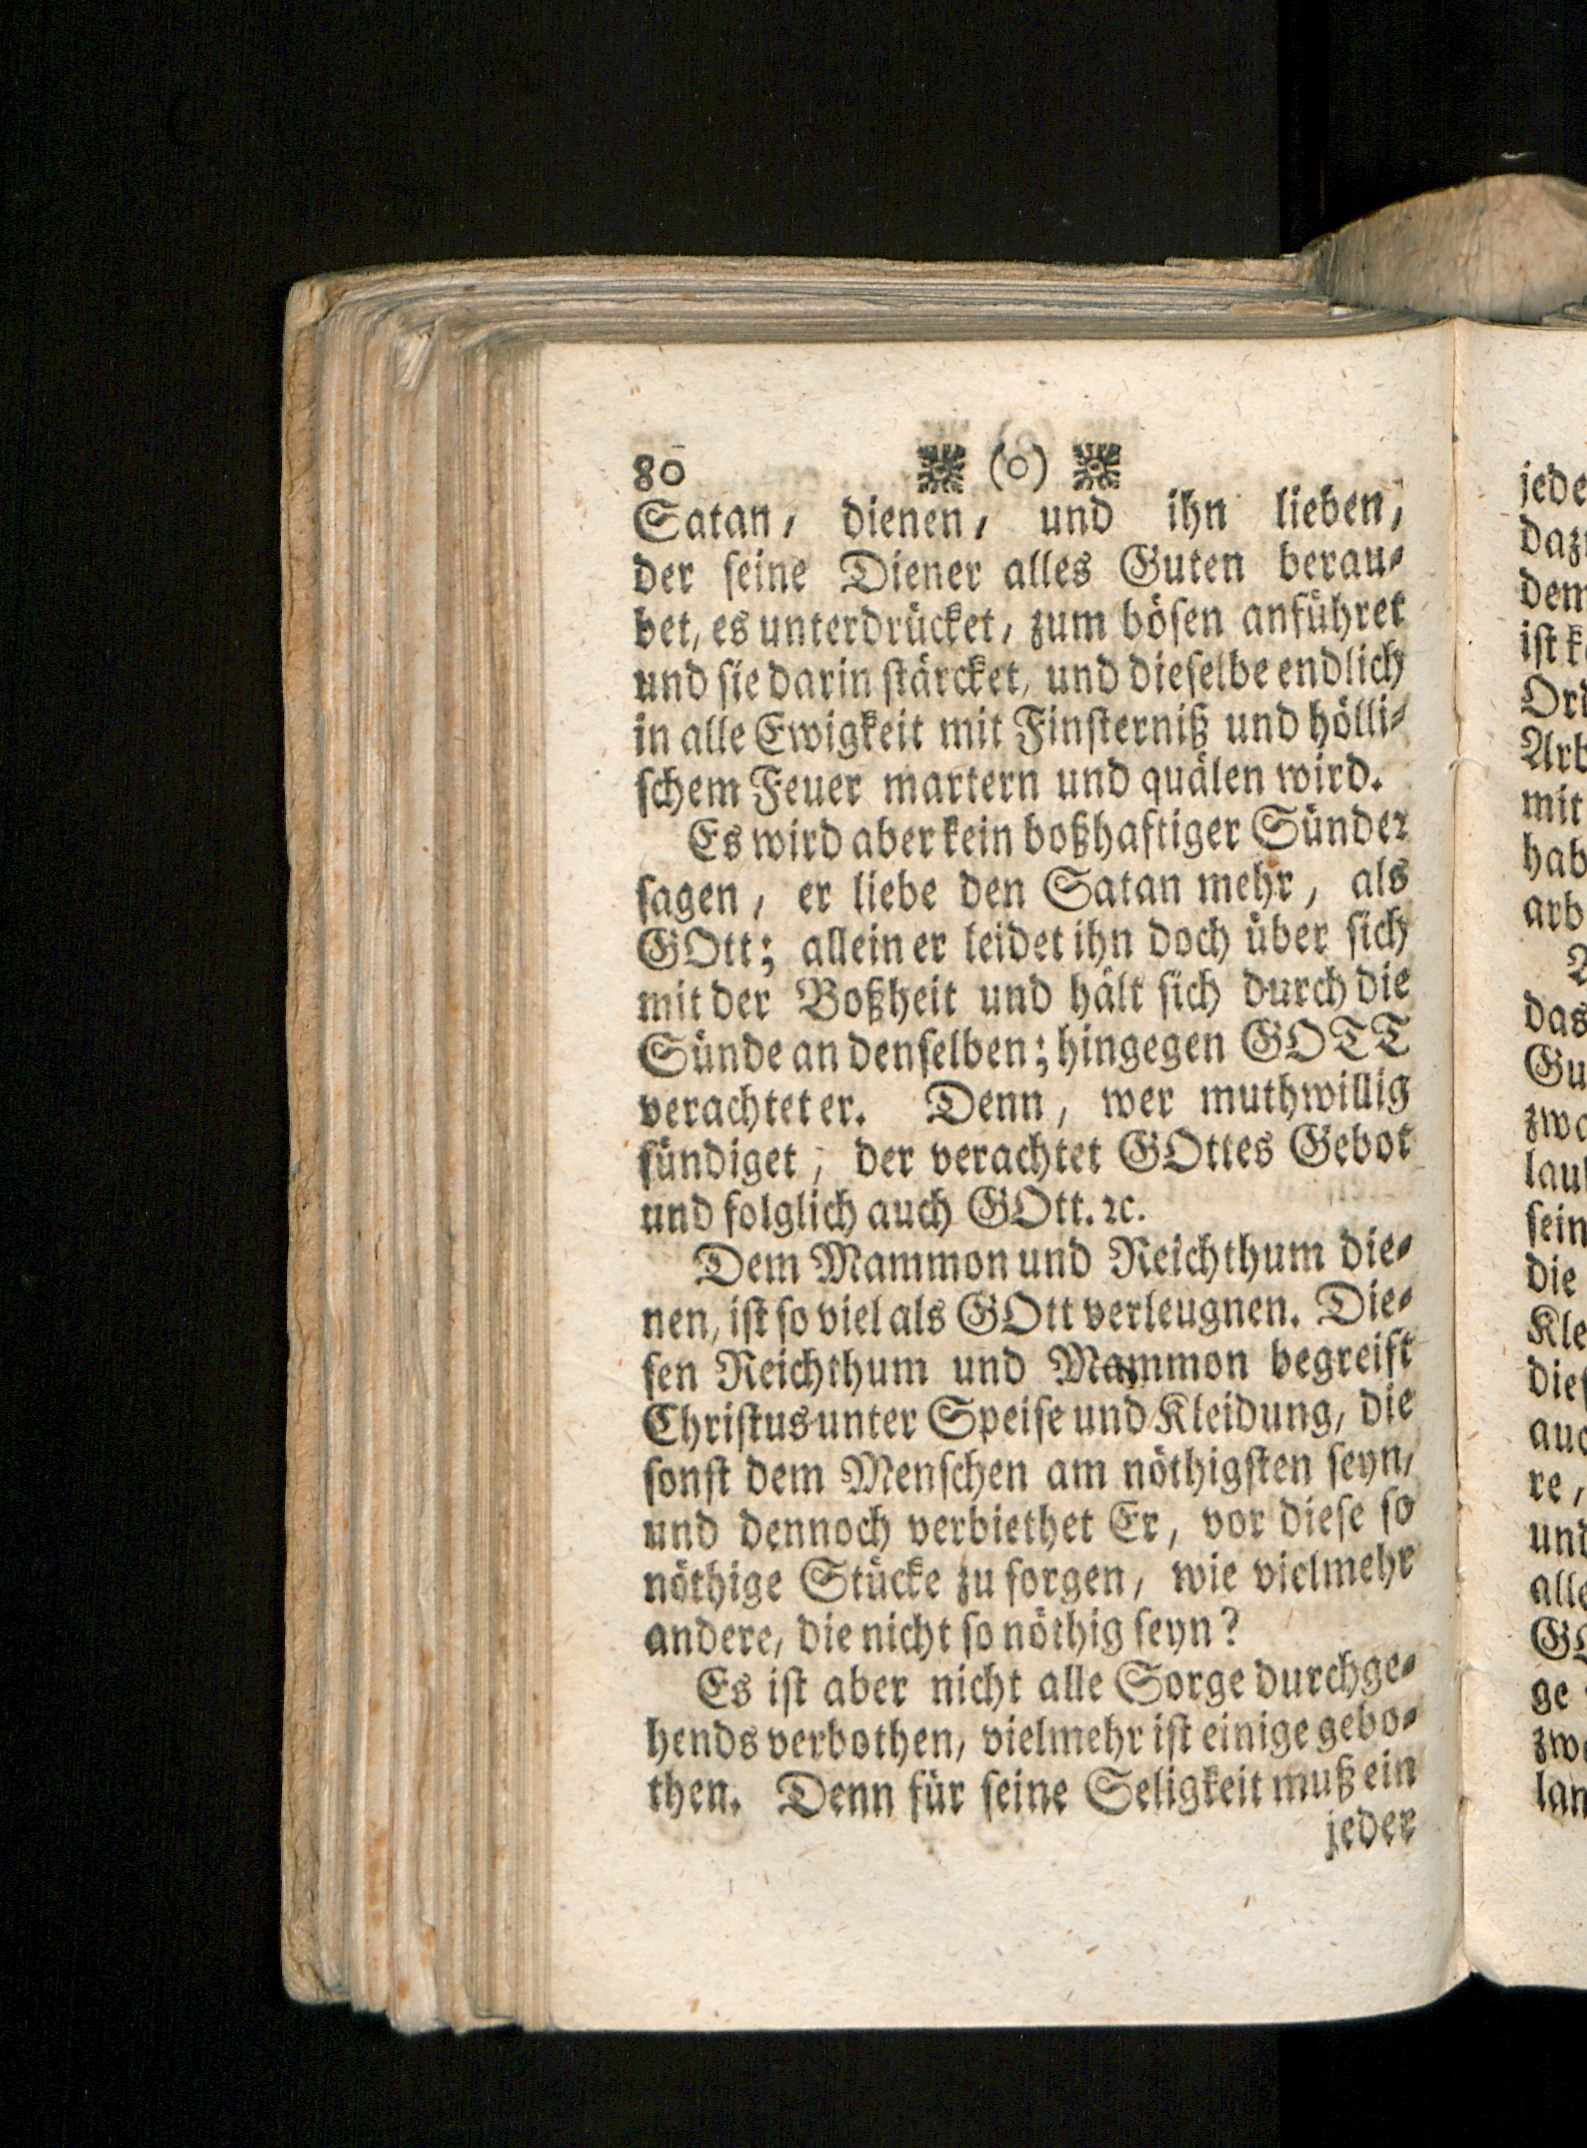 80 (o)
Satan, dienen, und ihn lieben,
der ſeine Diener alles Guten berau-
bet, es unterdrücket, zum böſen anführet
und ſie darin ſtärcket, und dieſelbe endlich
in alle Ewigkeit mit Finſterniß und hölli-
ſchem Feuer martern und quälen wird.
Es wird aber kein boßhaftiger Sünder
ſagen, er liebe den Satan mehr, als
GOtt; allein er leidet ihn doch über ſich
mit der Boßheit und hält ſich durch die
Sünde an denſelben; hingegen GOTT
verachtet er. Denn, wer muthwillig
ſündiget, der verachtet GOttes Gebot
und folglich auch GOtt. ꝛc.
Dem Mammon und Reichthum die-
nen, iſt ſo viel als GOtt verleugnen. Die-
ſen Reichthum und Mammon begreift
Chriſtus unter Speiſe und Kleidung, die
ſonſt dem Menſchen am nöthigſten ſeyn,
und dennoch verbiethet Er, vor dieſe ſo
nöthige Stücke zu ſorgen, wie vielmehr
andere, die nicht ſo nöthig ſeyn?
Es iſt aber nicht alle Sorge durchge-
hends verbothen, vielmehr iſt einige gebo-
then. Denn für ſeine Seligkeit muß ein
jeder